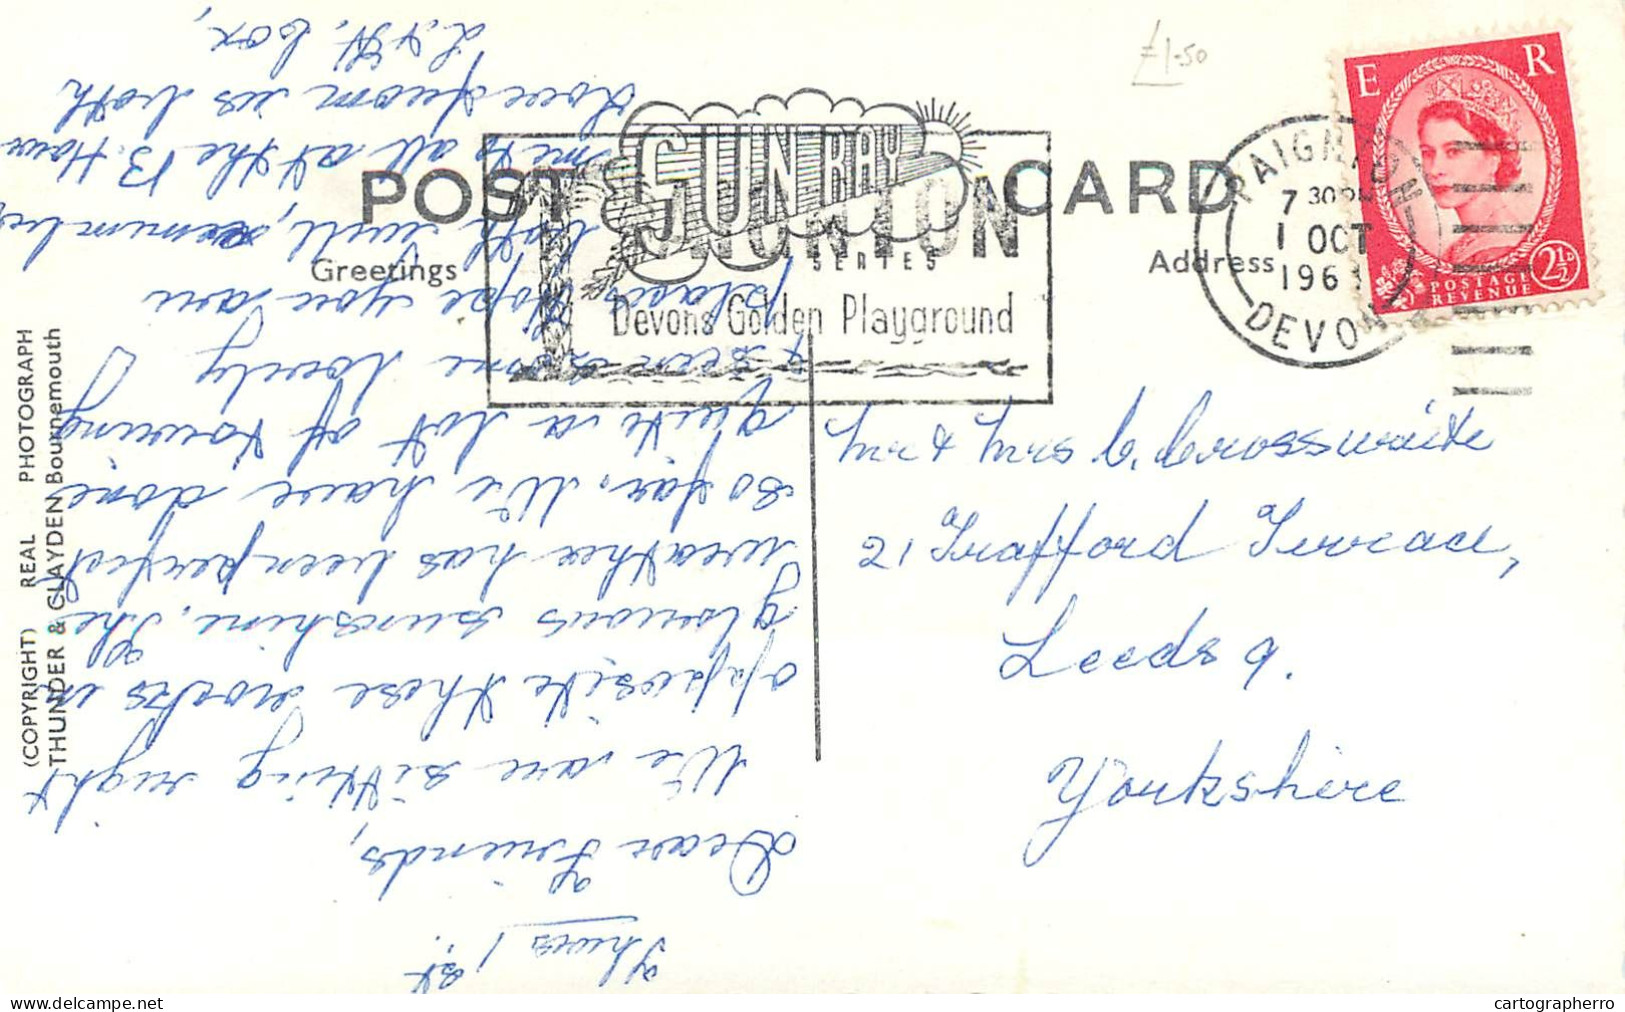 £1.50
POST CARD
SUNRAY
SERIES
Greetings
Address
Devons Golden Playground
PAIGNTON
7 30 PM
1 OCT
DEVON
E R
POSTAGE
REVENUE
2½D
(COPYRIGHT) REAL PHOTOGRAPH
THUNDER & CLAYDEN Bournemouth
Mr & Mrs C. Crosswaite
21 Trafford Terrace,
Leeds 9.
Yorkshire
Thurs 1st.
Dear Friends,
We are sitting right
opposite these rocks in
glorious sunshine. The
weather has been perfect
so far. We have done
quite a lot of touring
& seen some lovely
places, hope you are
both well, remember
me to all at the B. How
Love from us both
L & H. Cox
cartographerro